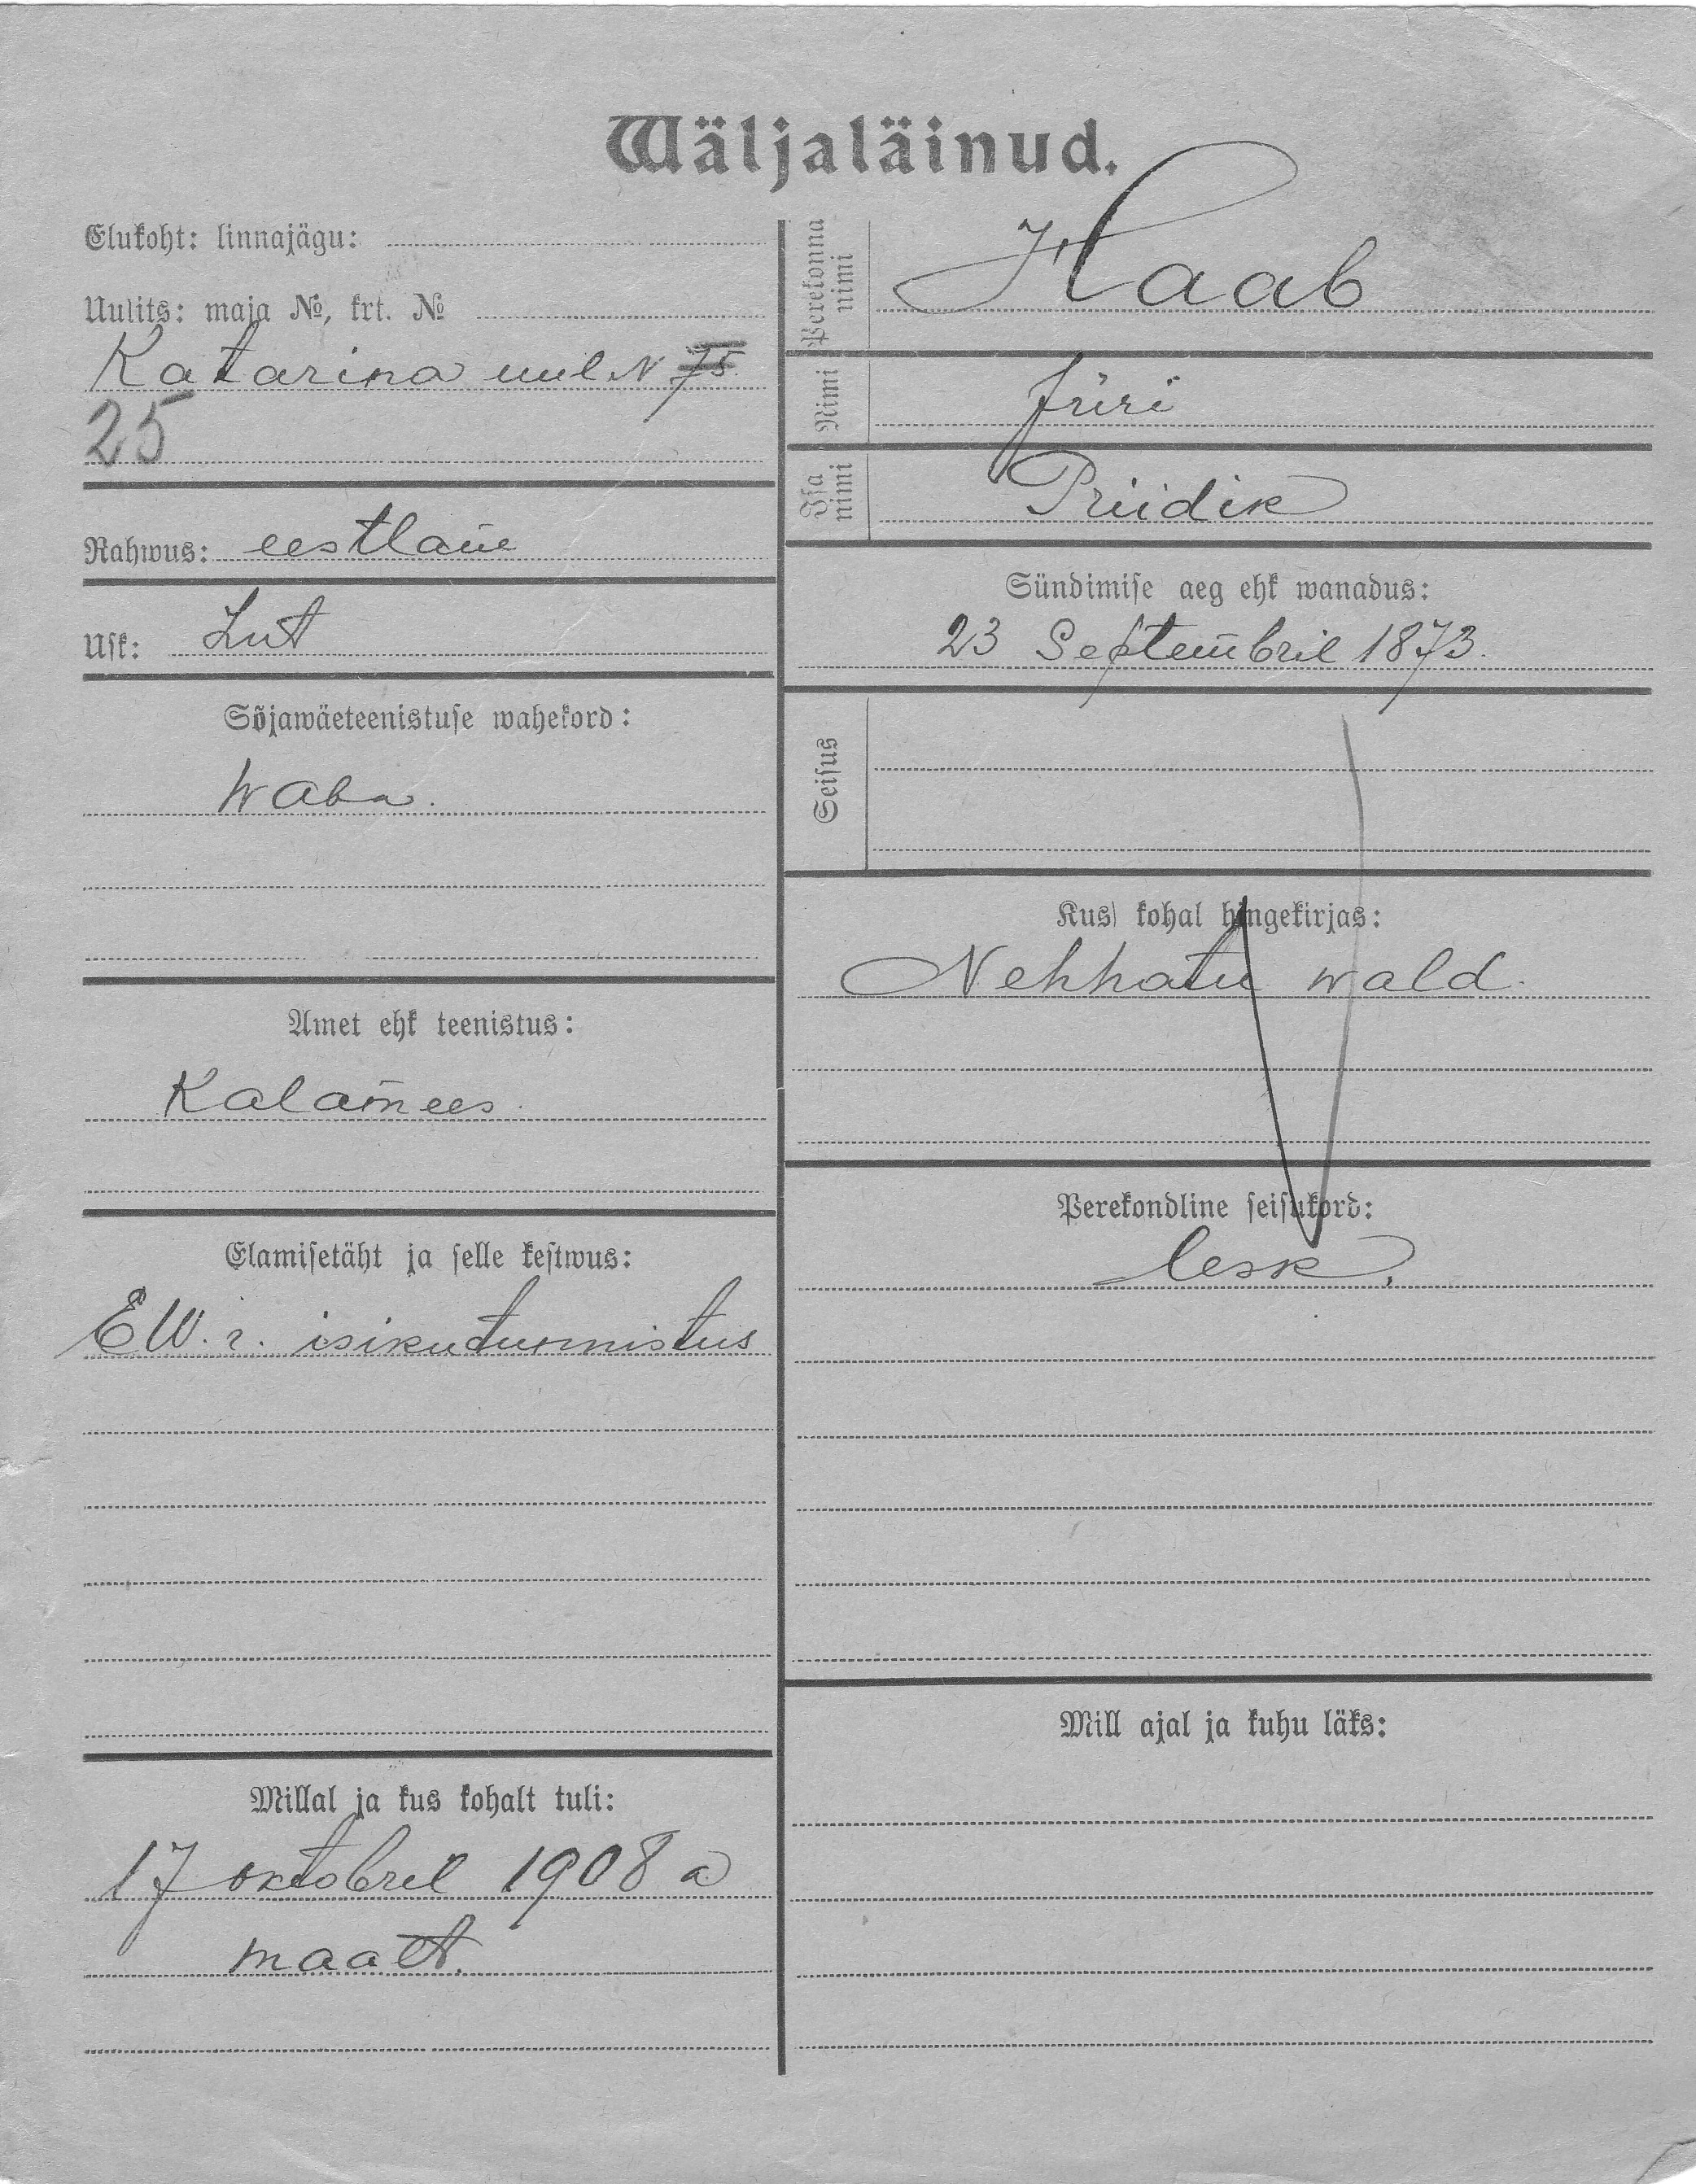 Wäljaläinud.
Elukoht: linnajägu:
Uulits: maja №, krt. №
Katarina uul. N 75
25
Rahwus: eestlane
Usk: Lut
Sõjawäeteenistuse wahekord:
waba.
Amet ehk teenistus:
Kalamees.
Elamisetäht ja selle kestwus:
E.W. r. isikutunnistus
Millal ja kus kohalt tuli:
17 oktobril 1908 a
maalt.
Perekonna nimi
Haab
Nimi
Jüri
Isa nimi
Priidik
Sündimise aeg ehk wanadus:
23 Septembril 1873.
Seisus
Kus kohal hingekirjas:
Nehhatu wald.
Perekondline seisukord:
lesk.
Mill ajal ja kuhu läks: